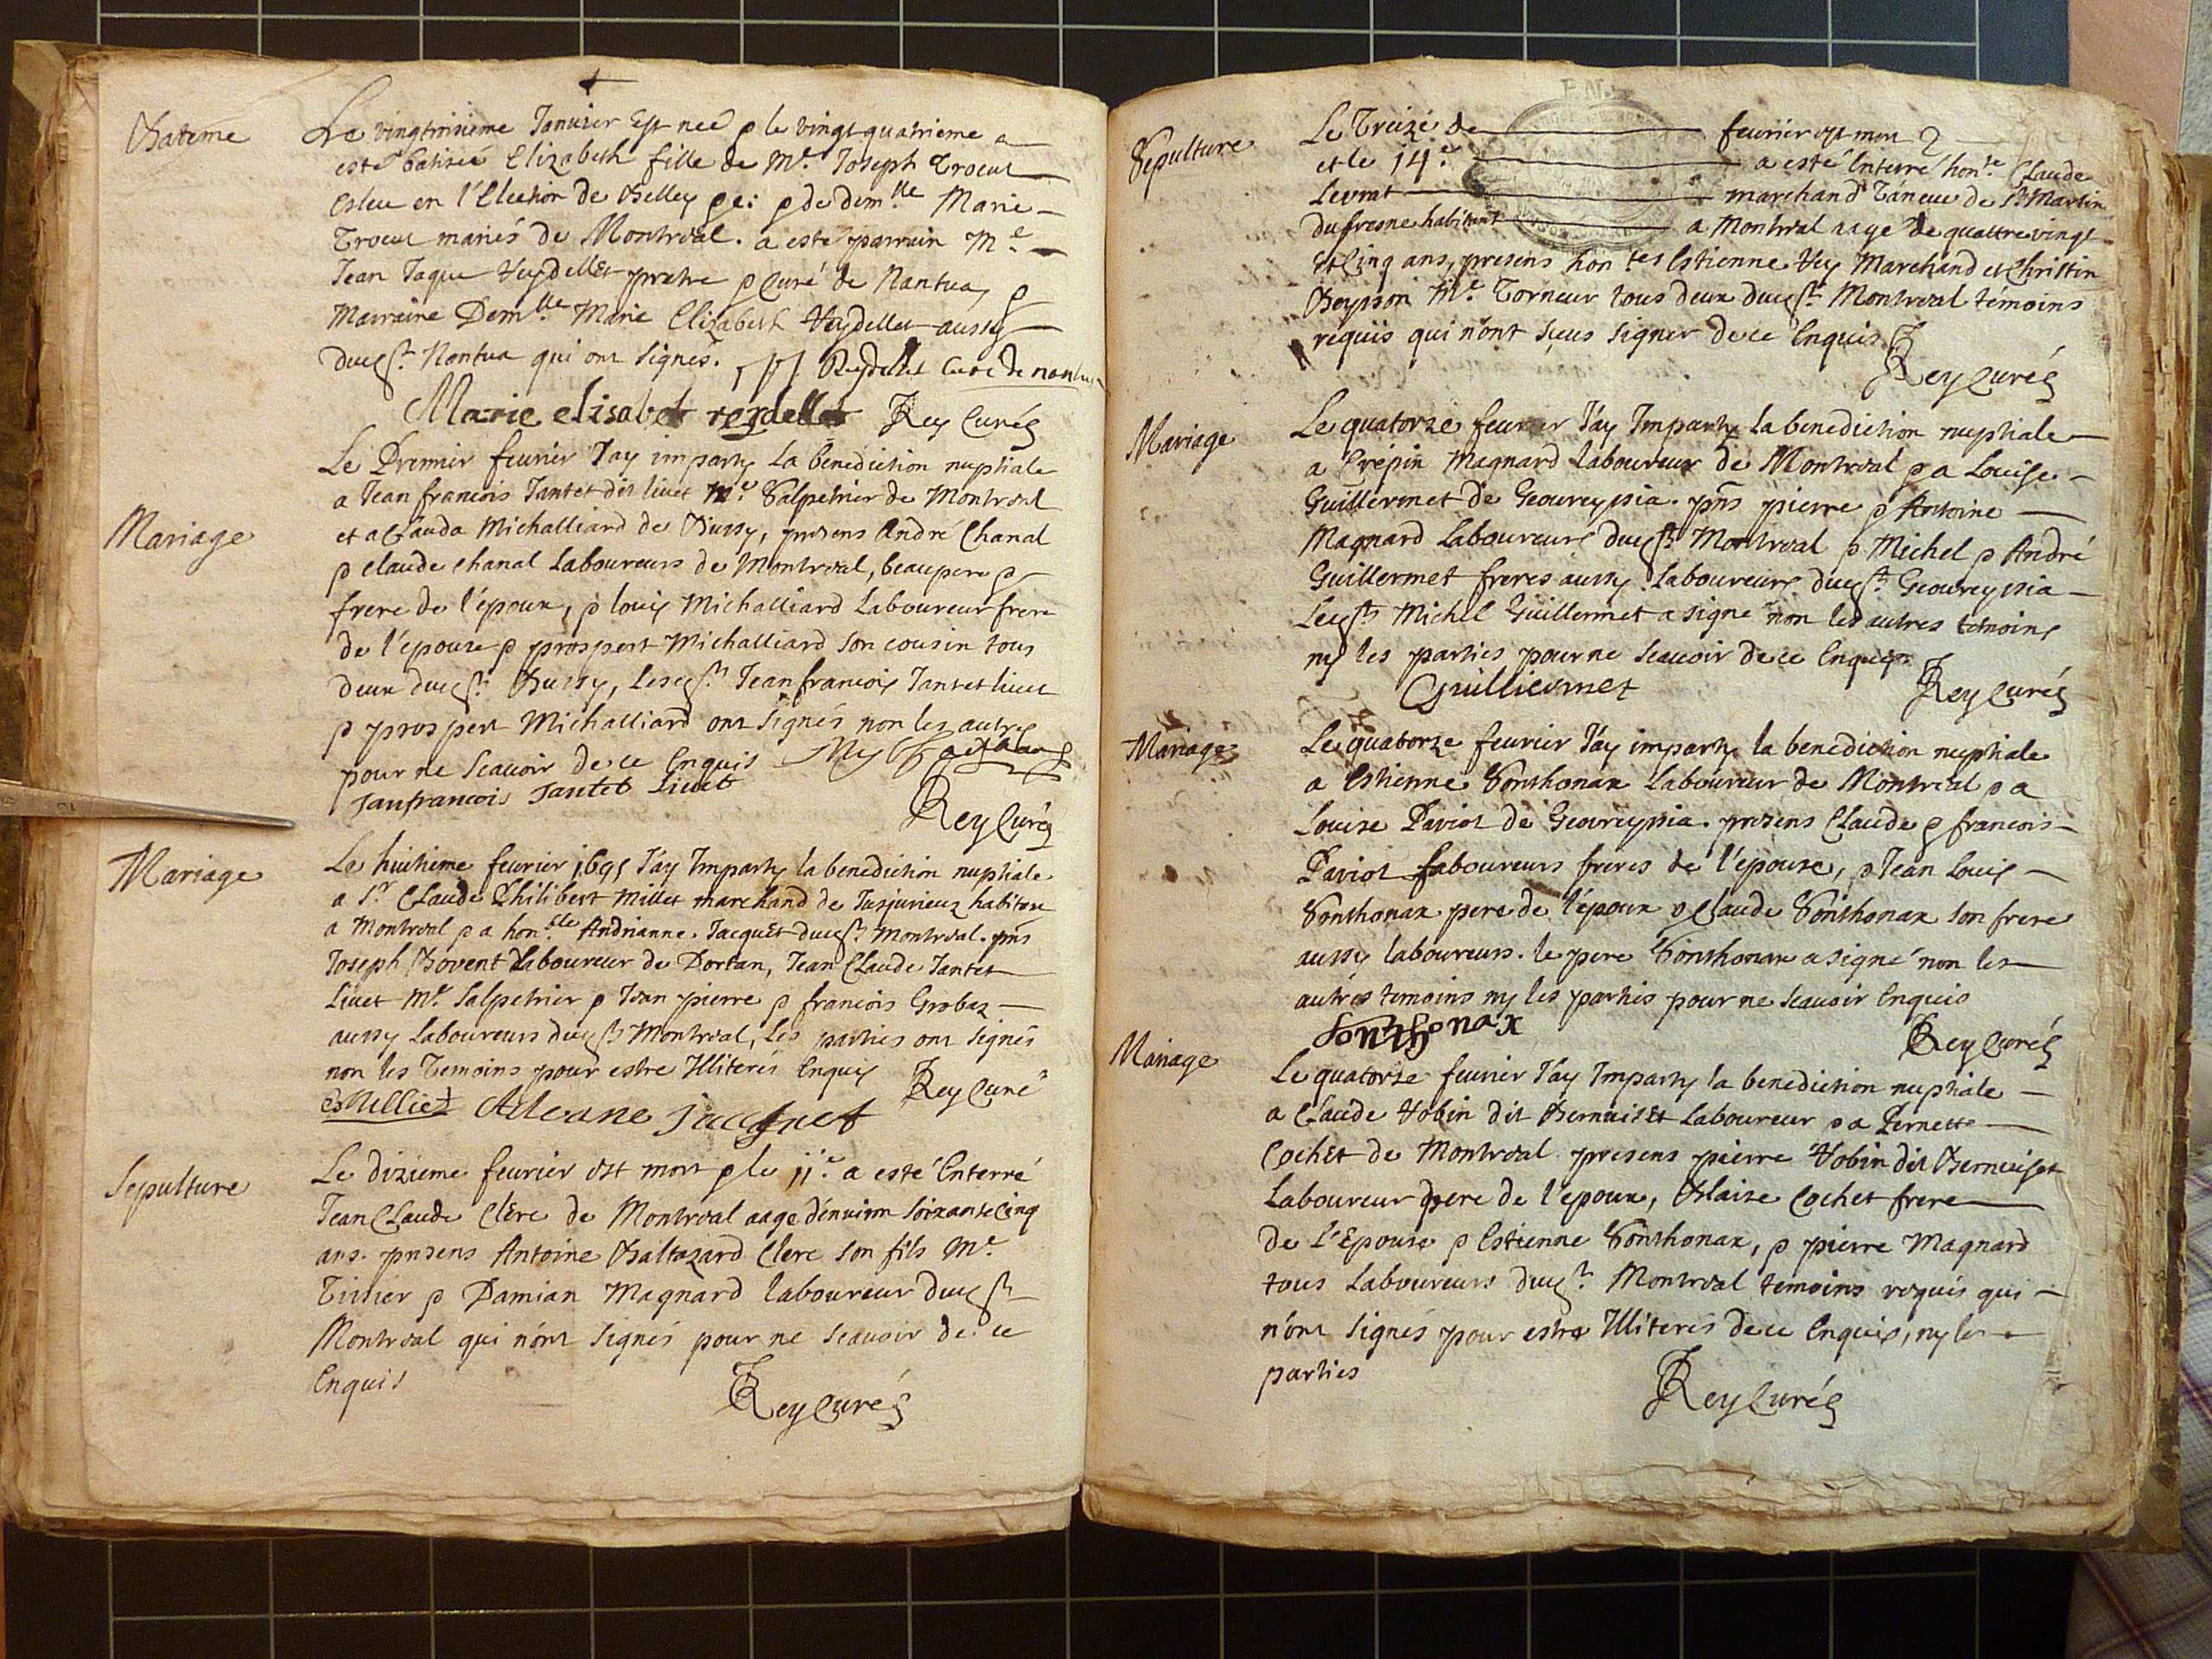 Bateme
Le vingtroisieme Janvier Est neé p le vingt quatrieme a
esté batiseé Elizabeth fille de Mr. Joseph Trocut
Esleu en l'Election de Belley p de demlle Marie
Trocut mariés de Montreal. a esté parrain Mre
Jean Jaque Reydellet pretre p Curé de Nantua, p
Marraine Demlle Marie Elizabeth Reydellet aussy
dudst. Nantua qui ont signés. Reydellet Curé de nantua
Marie elisabet reydellet Rey Curé
Mariage
Le Premier fevrier J'ay imparty La benediction nuptiale
a Jean francois Jantet dit livet Me. Salpetrier de Montreal
et a Clauda Michalliard de Bussy, presens André Chanal
p claude chanal Laboureurs de Montreal, beaupere p
frere de l'époux, p louis Michalliard Laboureur frere
de l'epouse p prospert Michalliard son cousin tous
deux dudst. Bussy, Lesdst. Jean francois Jantet livet
p prospert Michalliard ont signés non les autres
pour ne Scavoir de ce Enquis
Janfrancois Jantet Livet
Rey Curé
Mariage
Le huitieme fevrier 1695 J'ay Imparty la benediction nuptiale
a Sr. Claude Philibert Millet marchand de Jusjurieux habitant
a Montreal p a honble Andrianne Jacquet dudst. Montreal. pns
Joseph Bovent Laboureur de Dortan, Jean Claude Jantet
Livet Me. Salpetrier p Jean pierre p francois Grobas
aussy Laboureurs dudst Montreal, Les parties ont signés
non les Temoins pour estre Illiterés Enquis Rey Curé
Milliet Adreane Jacquet
Sepulture
Le dizieme fevrier est mort p le 11e. a esté Enterré
Jean Claude Clerc de Montreal aagé d'environ soixante cinq
ans. presens Antoine Baltazard Clerc son fils Me.
Tissier p Damian Magnard laboureur dudst
Montreal qui n'ont signés pour ne scavoir de ce
Enquis
Rey Curé
Sepulture
Le Treize de fevrier est mort
et le 14e. a esté Enterré honle. Claude
Levrat marchand Taneur de St Martin
du fresne habitant a Montreal aagé de quattre vingt
et Cinq ans, presens hontes Estienne Rey Marchand et Christin
Beysson Me. Torneur tous deux dudst. Montreal témoins
requis qui n'ont sçeus signer de ce Enquis
Rey Curé
Mariage
Le quatorze fevrier J'ay Imparty la benediction nuptiale
a Crépin Magnard Laboureur de Montreal p a Louise
Guillermet de Geovreyssia. pns pierre p Antoine
Magnard Laboureurs dudst. Montreal p Michel p André
Guillermet freres aussy Laboureurs dudst. Geovreyssia
Ledst. Michel Guillermet a signé non les autres temoins
ny les parties pour ne scavoir de ce Enquis
Guilliermet Rey Curé
Mariage
Le quatorze fevrier J'ay imparty la benediction nuptiale
a Estienne Sonthonax Laboureur de Montreal p a
Louise Paviot de Geovreyssia. presens Claude p francois
Paviot Laboureurs freres de l'épouse, p Jean Louis
Sonthonax pere de l'époux p Claude Sonthonax son frere
aussy laboureurs. le pere Sonthonax a signé non les
autres temoins ny les parties pour ne scavoir Enquis
Sonthonax Rey Curé
Mariage
Le quatorze fevrier J'ay Imparty la benediction nuptiale
a Claude Robin dit Bernuiset Laboureur p a Pernette
Cochet de Montreal presens pierre Robin dit Bernuiset
Laboureur pere de l'époux, Blaise Cochet frere
de L'Epouse p Estienne Sonthonax, p pierre Magnard
tous Laboureurs dudst. Montreal temoins requis qui
n'ont signés pour estre Illiterés de ce Enquis, ny les
parties
Rey Curé